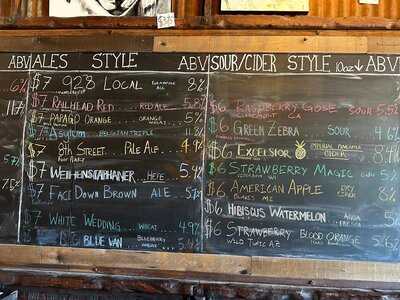 ABV ALES STYLE ABV SOUR/CIDER STYLE 10oz↓ ABV
6% $7 928 LOCAL ALE 8%
$7 RAILHEAD RED RED ALE 5.8% $6 RASPBERRY GOSE SOUR 5.5%
$7 PAPAGO ORANGE ORANGE WHEAT 5%
$6 GREEN ZEBRA SOUR 4.6%
$7 ASYLUM BELGIAN TRIPLE 11%
$7 8TH STREET PALE ALE $6 EXCELSIOR IMPERIAL CIDER 8.4%
$7 WEIHENSTEPHANER HEFE 5.4% $6 STRAWBERRY MAGIC 5%
$7 FACE DOWN BROWN ALE 5.7% $6 AMERICAN APPLE DRY CIDER 8%
$6 HIBISCUS WATERMELON AGUA FRESCA 5%
$7 WHITE WEDDING WHEAT 4.9%
$6 STRAWBERRY BLOOD ORANGE 5.6%
BLUE VAN BLUEBERRY 5.4%